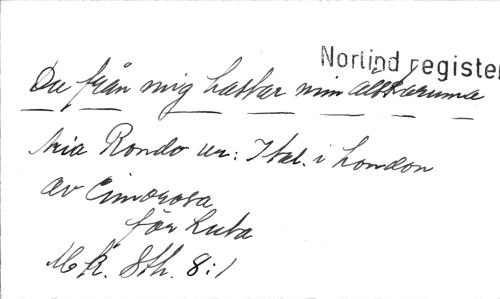 Norlind register
Du från mig hastar min allskäruma
Aria Rondo ur: Ital. i London
av Cimarosa
för Luta
MK. Sth. 8:1